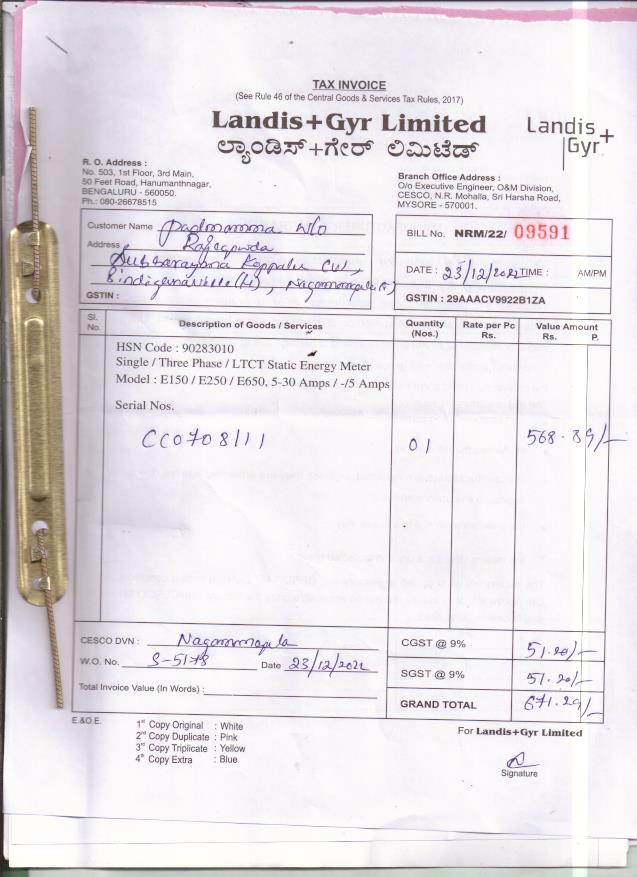 TAX INVOICE
(See Rule 46 of the Central Goods & Services Tax Rules, 2017)
Landis+Gyr Limited
ಲ್ಯಾಂಡಿಸ್+ಗೇರ್ ಲಿಮಿಟೆಡ್
Landis+
Gyr
R. O. Address :
No. 503, 1st Floor, 3rd Main,
50 Feet Road, Hanumanthnagar,
BENGALURU - 560050.
Ph.: 080-26678515
Branch Office Address :
O/o Executive Engineer, O&M Division,
CESCO, N.R. Mohalla, Sri Harsha Road,
MYSORE - 570001.
Customer Name Padmamma W/o
Address
GSTIN :
BILL No. NRM/22/ 09591
DATE : 23/12/2022 TIME : AM/PM
GSTIN : 29AAACV9922B1ZA
Sl. No. Description of Goods / Services Quantity (Nos.) Rate per Pc Rs. Value Amount Rs. P.
HSN Code : 90283010
Single / Three Phase / LTCT Static Energy Meter
Model : E150 / E250 / E650, 5-30 Amps / -/5 Amps
Serial Nos.
CC0708111 01 568.89/-
CESCO DVN :
W.O. No. S-5178 Date 23/12/2022
Total Invoice Value (In Words) :
CGST @ 9% 51.20/-
SGST @ 9% 51.20/-
GRAND TOTAL 671.29/-
E.&O.E.
1st Copy Original : White
2nd Copy Duplicate : Pink
3rd Copy Triplicate : Yellow
4th Copy Extra : Blue
For Landis+Gyr Limited
Signature